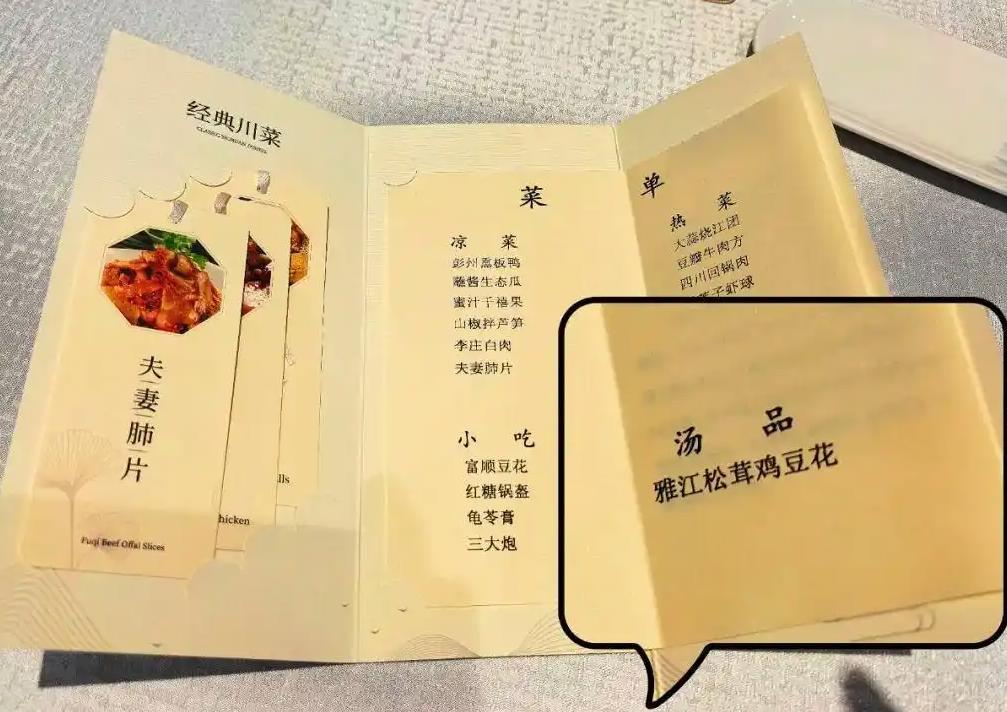 经典川菜
CLASSIC SICHUAN DISHES
夫妻肺片
Fuqi Beef Offal Slices
hicken
lls
菜单
凉菜
彭州熏板鸭
蘸酱生态瓜
蜜汁千禧果
山椒拌芦笋
李庄白肉
夫妻肺片
小吃
富顺豆花
红糖锅盔
龟苓膏
三大炮
热菜
大蒜烧江团
豆瓣牛肉方
四川回锅肉
子虾球
汤品
雅江松茸鸡豆花